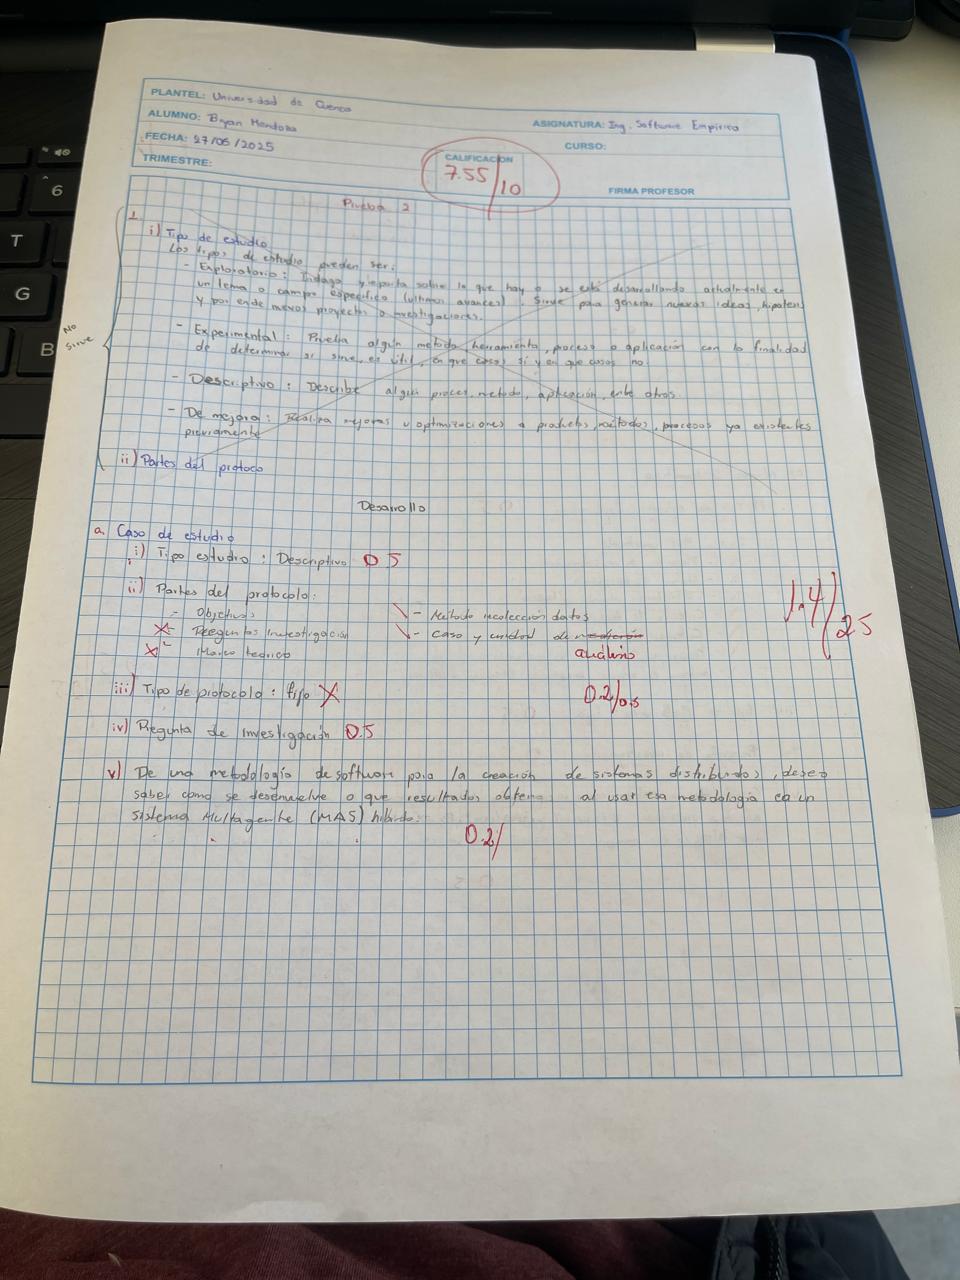 PLANTEL: Universidad de Cuenca
ALUMNO: Bryan Mendoza
ASIGNATURA: Ing. Software Empírico
FECHA: 27/06/2025
CURSO:
TRIMESTRE:
CALIFICACIÓN
7.55/10
FIRMA PROFESOR
Prueba 2
1.
i) Tipo de estudio
Los tipos de estudio pueden ser:
- Exploratorio: Indaga y reporta sobre lo que hay o se está desarrollando actualmente en
un tema o campo específico (últimos avances). Sirve para generar nuevas ideas, hipótesis
y por ende nuevos proyectos o investigaciones.
No sirve
- Experimental: Prueba algún método herramienta, proceso o aplicación con la finalidad
de determinar si sirve, es útil, en que casos si y en que casos no.
- Descriptivo: Describe algún proceso, método, aplicación, entre otros.
- De mejora: Realiza mejoras u optimizaciones a productos, métodos, procesos ya existentes
previamente
ii) Partes del protoco
Desarrollo
a. Caso de estudio
i) Tipo estudio: Descriptivo 0.5
ii) Partes del protocolo:
- Objetivos
- Método recolección datos
- Preguntas investigación
- Caso y unidad de medición
- Marco teórico
análisis
1.4/25
iii) Tipo de protocolo: fijo X
0.2/0.5
iv) Pregunta de investigación 0.5
v) De una metodología de software para la creación de sistemas distribuidos, deseo
saber como se desenvuelve o que resultados obtengo al usar esa metodología en un
sistema Multagente (MAS) híbrido.
0.2/